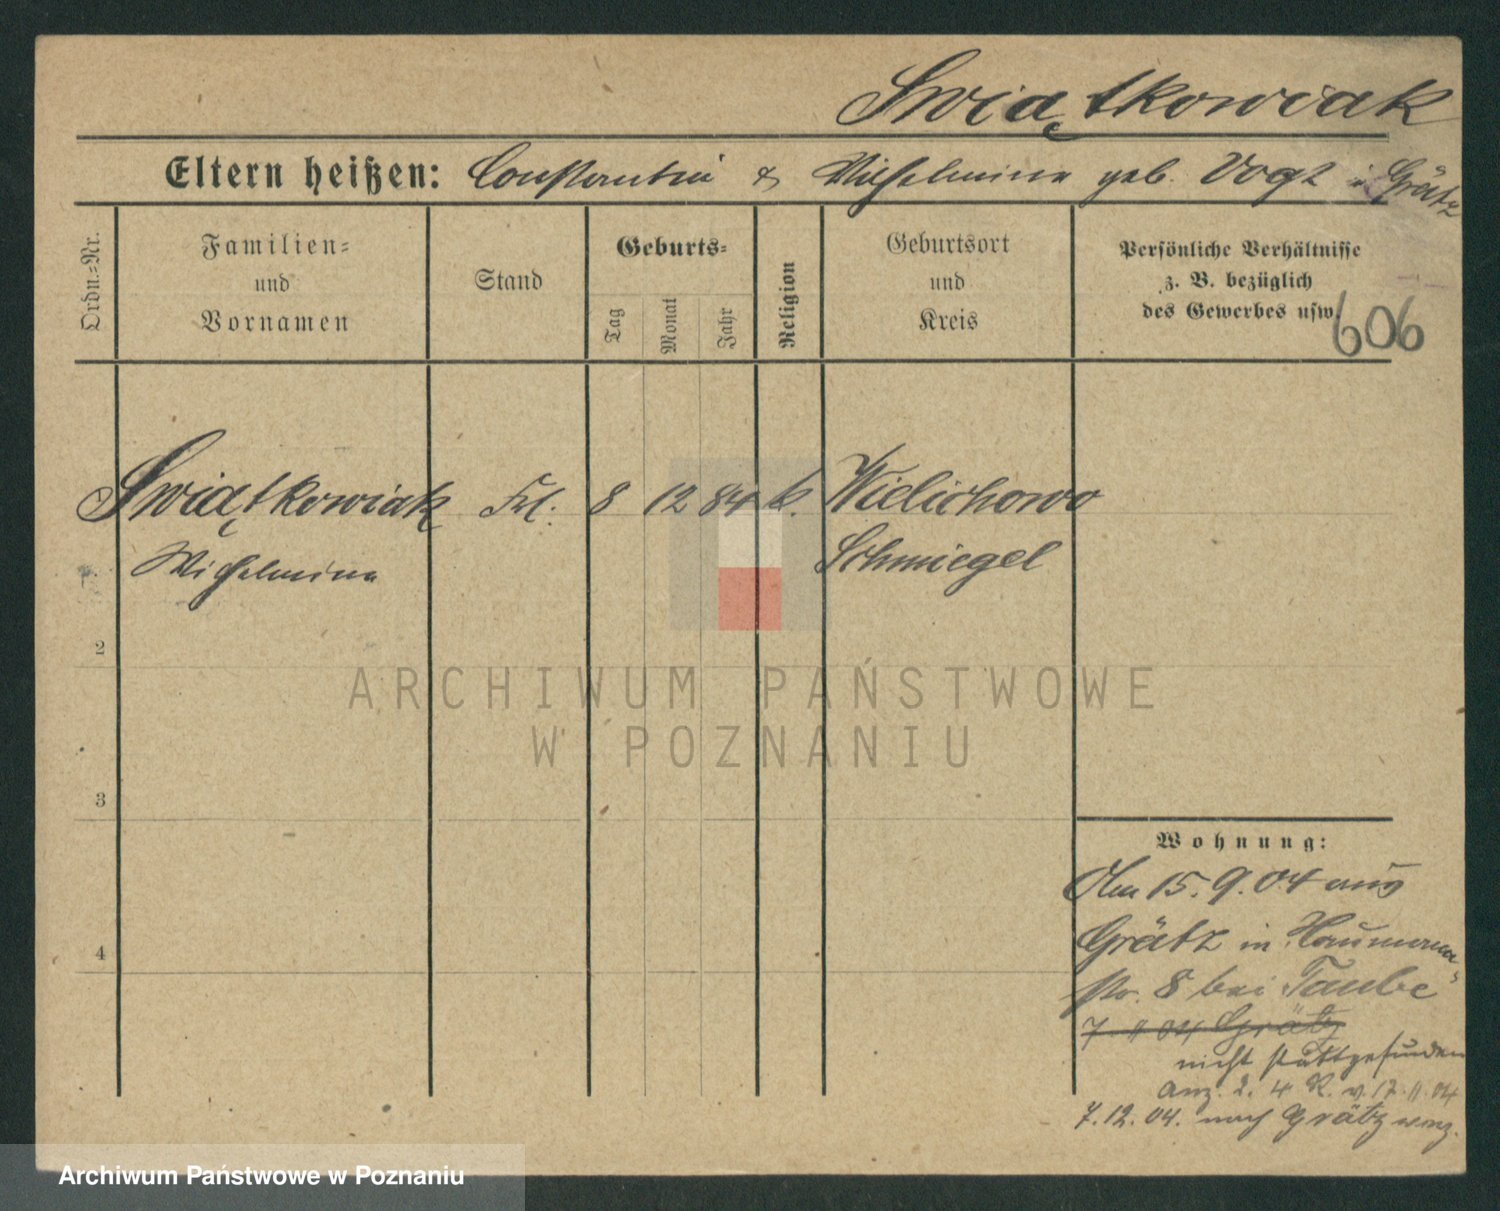 Świątkowiak
Eltern heißen: Constantin & Wilhelmina geb. Vogt i. Grätz
Ordn.=Nr.
Familien=
und
Vornamen
Stand
Geburts=
Tag
Monat
Jahr
Religion
Geburtsort
und
Kreis
Persönliche Verhältnisse
z. B. bezüglich
des Gewerbes usw.
606
Świątkowiak Frl. 8 12 84 k. Wielichowo
Wilhelmina Schmiegel
2
3
4
ARCHIWUM PAŃSTWOWE
W POZNANIU
Wohnung:
Am 15. 9. 04 aus
Grätz in Naumann
str. 8 bei Taube
7. 11 04 Grätz
nicht stattgefunden
Anz. 2. 4 R. v. 17. 11. 04
7. 12. 04. nach Grätz verz.
Archiwum Państwowe w Poznaniu